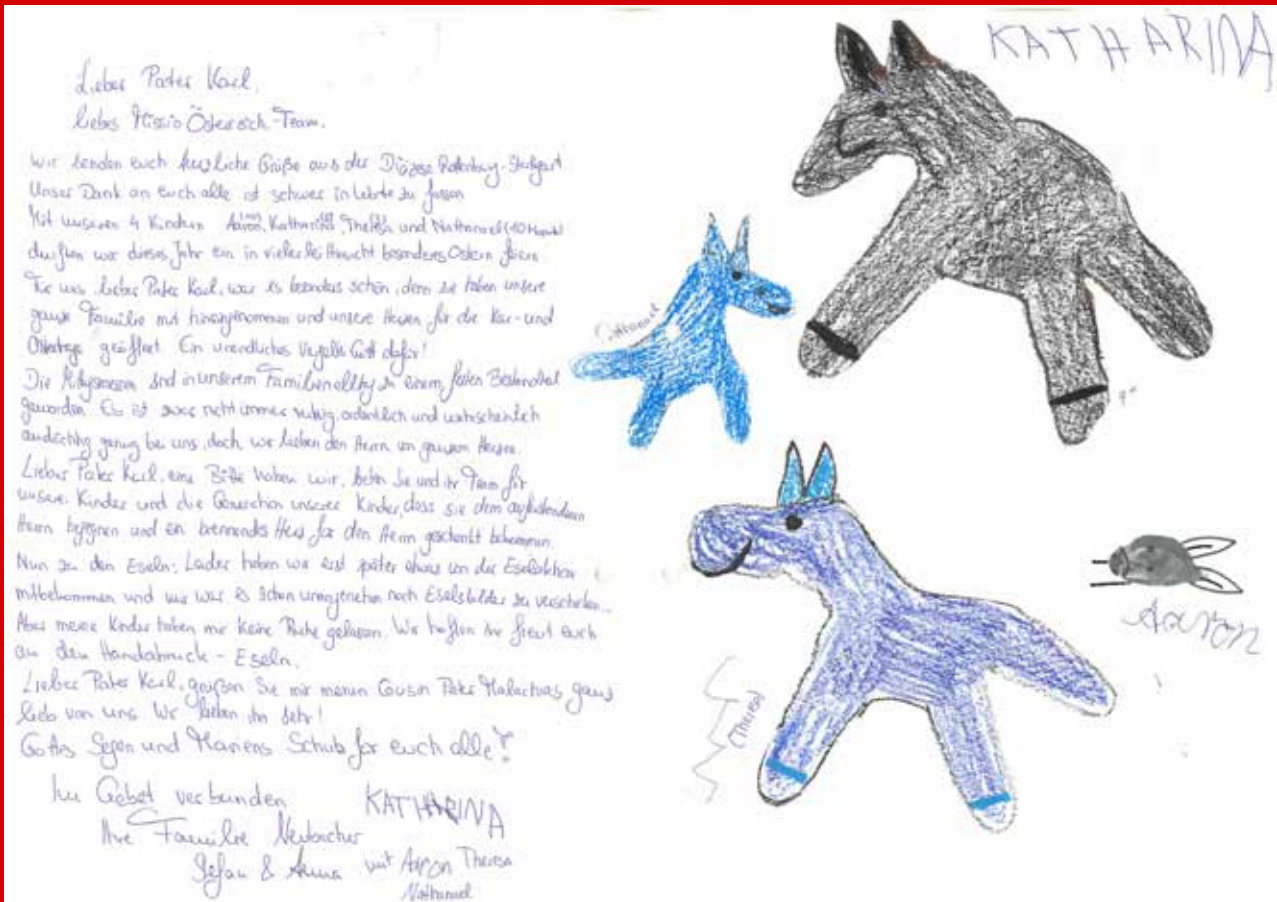 Lieber Pater Karl,
liebes Missio Österreich-Team,
wir senden euch herzliche Grüße aus der Diözese Rottenburg-Stuttgart
Unser Dank an euch alle ist schwer in Worte zu fassen
Mit unseren 4 Kindern Aaron, Katharina, Theresa und Nathanael (10 Monate)
durften wir dieses Jahr ein in vielerlei Hinsicht besonderes Ostern feiern
Für uns, lieber Pater Karl, war es besonders schön, denn sie haben unsere
ganze Familie mit hineingenommen und unsere Herzen für die Kar- und
Ostertage geöffnet. Ein unendliches Vergelts Gott dafür!
Die sind in unserem Familienalltag zu einem festen Bestandteil
geworden. Es ist zwar nicht immer ruhig, ordentlich und wahrscheinlich
andächtig genug bei uns, doch wir lieben den Herrn von ganzem Herzen.
Lieber Pater Karl, eine Bitte haben wir, beten Sie und ihr Team für
unsere Kinder und die Generation unserer Kinder, dass sie dem auferstandenen
Herrn begegnen und ein brennendes Herz für den Herrn geschenkt bekommen.
Nun zu den Eseln: Leider haben wir erst später etwas von der Eselaktion
mitbekommen und mir war es schon unangenehm noch Eselsbilder zu verschicken...
Aber meine Kinder haben mir keine Ruhe gelassen. Wir hoffen ihr freut euch
an den Handabruck-Eseln.
Lieber Pater Karl, grüßen Sie mir meinen Cousin Pater Malachias ganz
lieb von uns. Wir lieben ihn sehr!
Gottes Segen und Mariens Schutz für euch alle!
Im Gebet verbunden
Ihre Familie Neubacher
Stefan & Anna mit Aaron Theresa
Nathanael
KATHARINA
KATHARINA
Nathanael
Theresa
Aaron